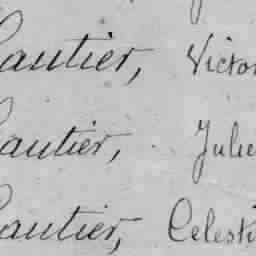 Gautier, Victor
Gautier, Julie
Gautier, Celesti